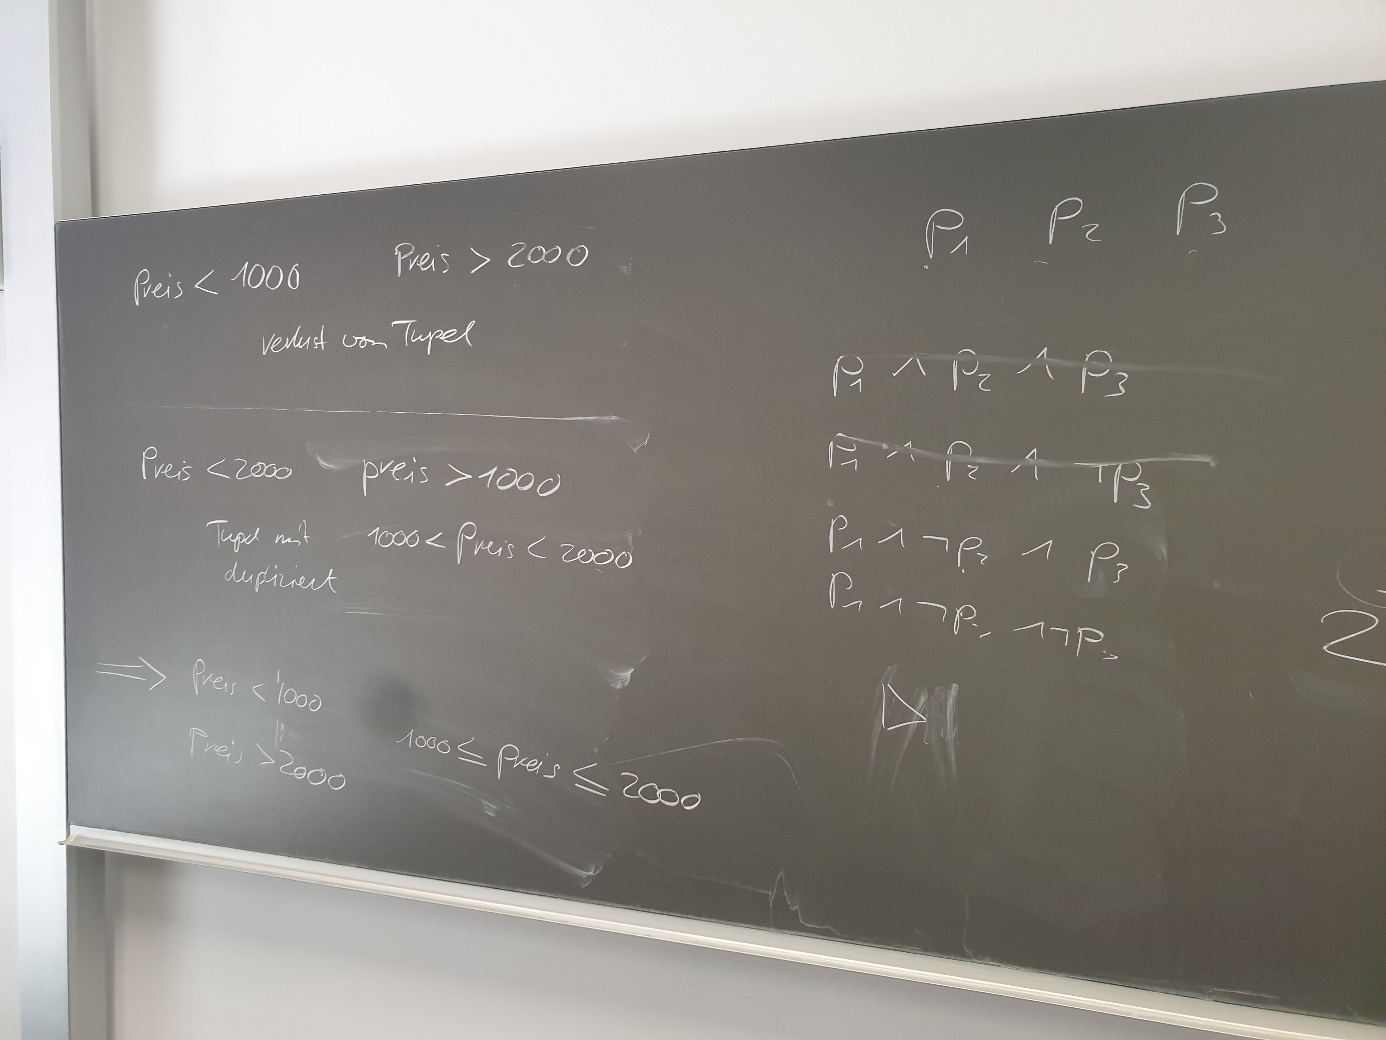 Preis < 1000 Preis > 2000
verlust von Tupel
Preis < 2000 preis > 1000
Tupel mit 1000 < Preis < 2000
dupliziert
⟹ Preis < 1000
Preis > 2000 1000 ≤ Preis ≤ 2000
P1 P2 P3
P1 ∧ P2 ∧ P3
P1 ∧ P2 ∧ ¬P3
P1 ∧ ¬P2 ∧ P3
P1 ∧ ¬P2 ∧ ¬P3
2